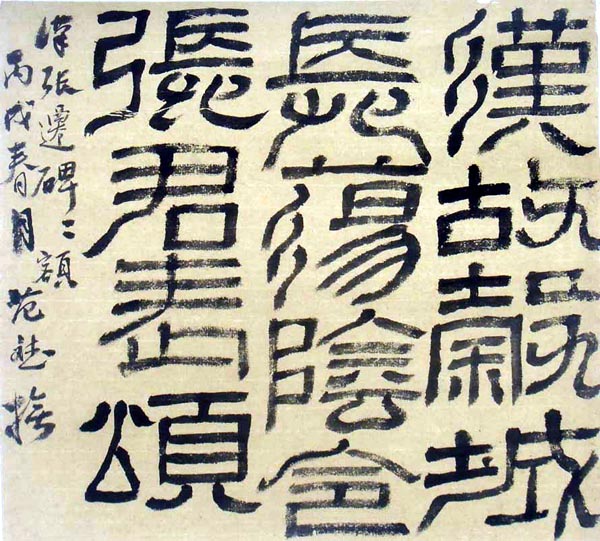 漢故穀城
長蕩陰令
張君表頌
漢張遷碑之額
丙戌春月范斌撫